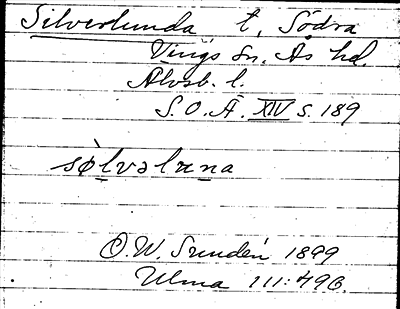 Silverlunda t, Södra
Vings sn. Ås hd.
Älvsb. l.
S. O. Ä. XIV s. 189
sølvəluna
O. W. Sundén 1899
Ulma 111:496.